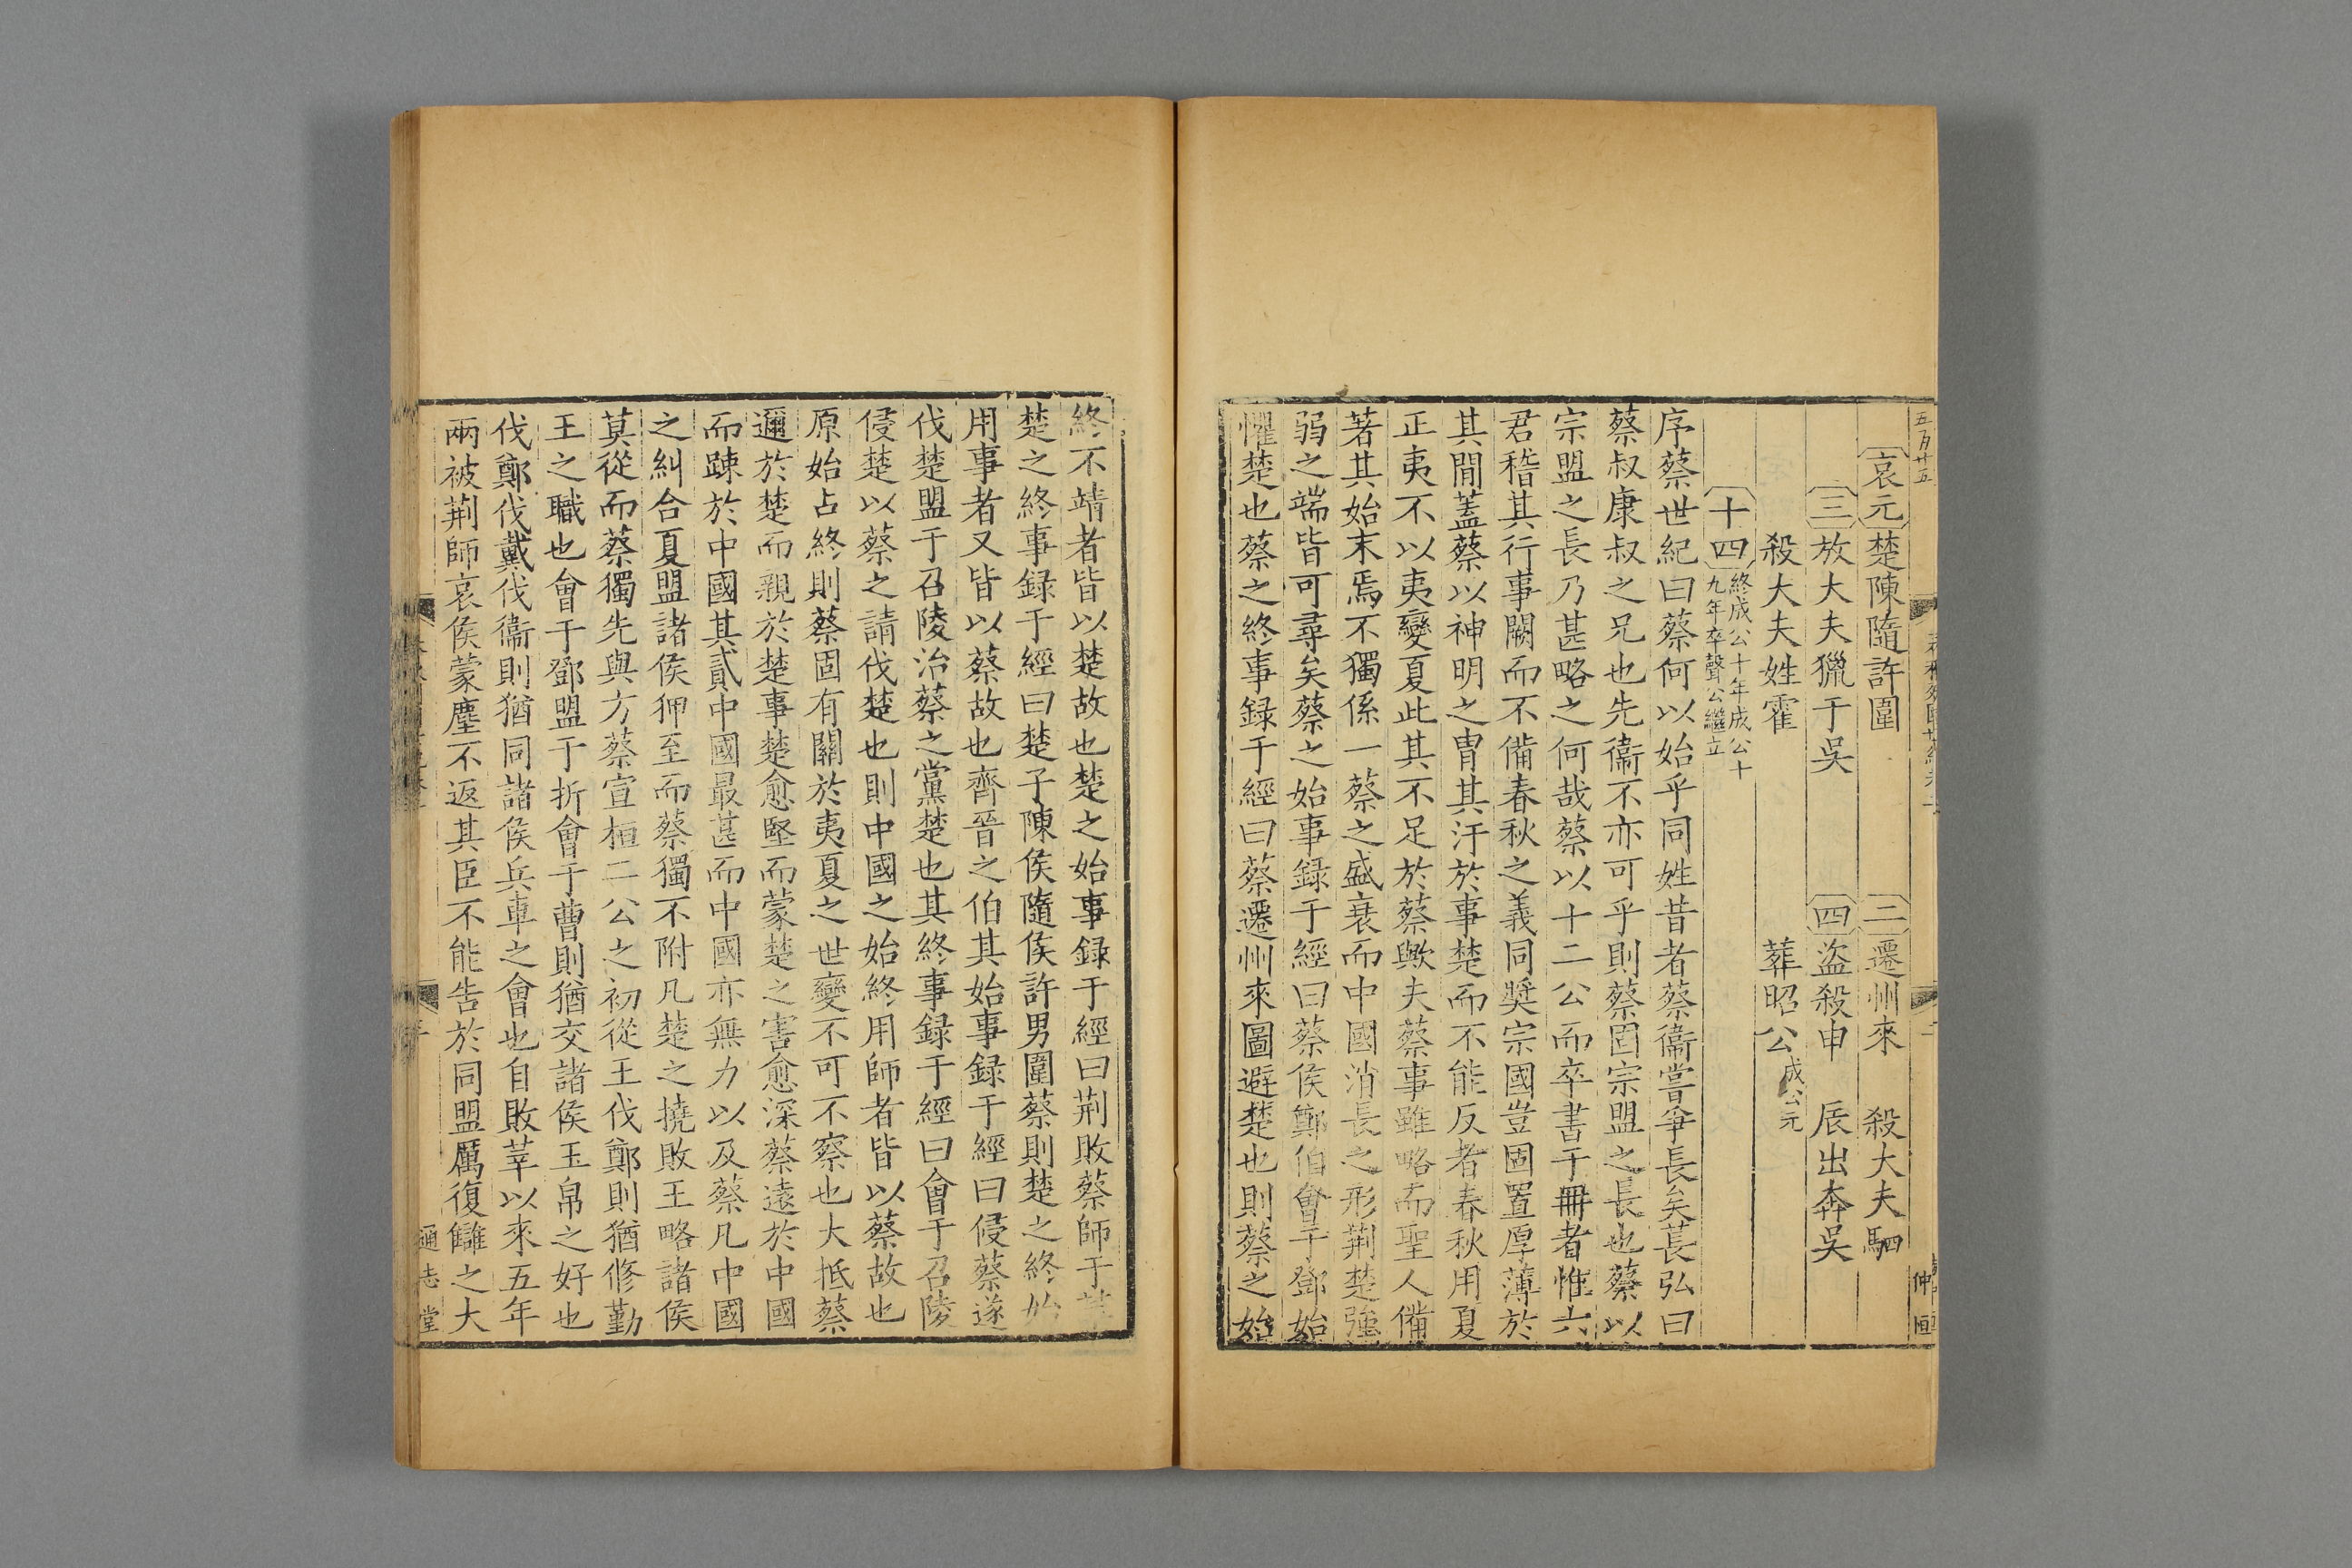 五百廿五
仲恒
哀元楚陳隨許圍 二遷州來 殺大夫駟
三放大夫獵于吳 四盜殺申 辰出奔吳
殺大夫姓霍 葬昭公成公元
十四終成公十年成公十
九年卒聲公繼立
序蔡世紀曰蔡何以始乎同姓昔者蔡衞嘗爭長矣萇弘曰
蔡叔康叔之兄也先衞不亦可乎則蔡固宗盟之長也蔡以
宗盟之長乃甚略之何哉蔡以十二公而卒書于冊者惟六
君稽其行事闕而不備春秋之義同奬宗國豈固置厚薄於
其間蓋蔡以神明之胄其汙於事楚而不能反者春秋用夏
正夷不以夷變夏此其不足於蔡歟夫蔡事雖略而聖人備
著其始末焉不獨係一蔡之盛衰而中國消長之形荆楚強
弱之端皆可尋矣蔡之始事録于經曰蔡侯鄭伯會于鄧始
懼楚也蔡之終事録于經曰蔡遷州來圖避楚也則蔡之始
終不靖者皆以楚故也楚之始事録于經曰荆敗蔡師于莘
楚之終事録于經曰楚子陳侯隨侯許男圍蔡則楚之終始
用事者又皆以蔡故也齊晉之伯其始事録于經曰侵蔡遂
伐楚盟于召陵治蔡之黨楚也其終事録于經曰會于召陵
侵楚以蔡之請伐楚也則中國之始終用師者皆以蔡故也
原始占終則蔡固有關於夷夏之世變不可不察也大抵蔡
邇於楚而親於楚事楚愈堅而蒙楚之害愈深蔡遠於中國
而踈於中國其貳中國最甚而中國亦無力以及蔡凡中國
之糾合夏盟諸侯狎至而蔡獨不附凡楚之撓敗王略諸侯
莫從而蔡獨先與方蔡宣桓二公之初從王伐鄭則猶修勤
王之職也會于鄧盟于折會于曹則猶交諸侯玉帛之好也
伐鄭伐戴伐衞則猶同諸侯兵車之會也自敗莘以來五年
兩被荆師哀侯蒙塵不返其臣不能告於同盟厲復讎之大
通志堂